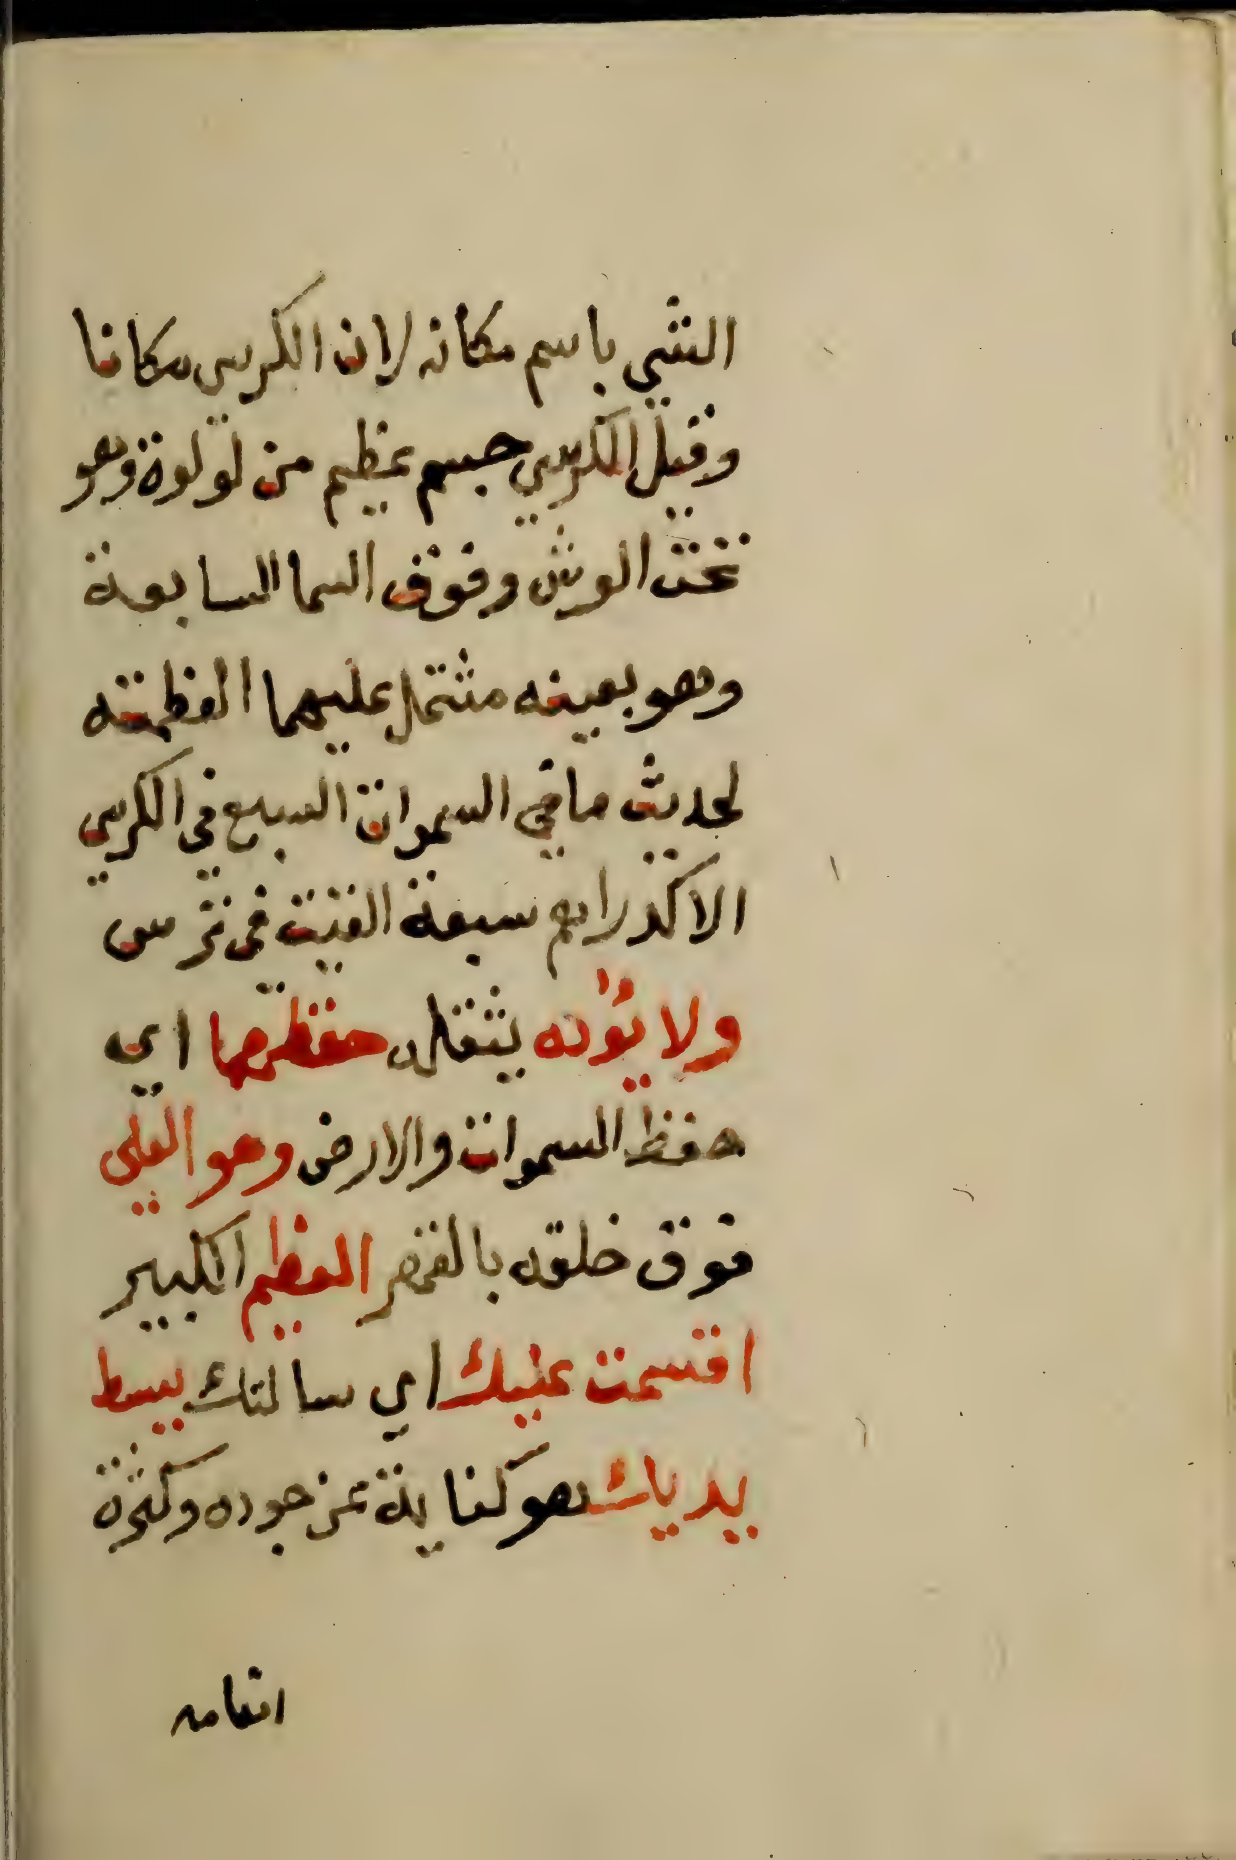 الشي باسم مكانه لان الكرسي مكانا
وقيل الكرسي جسم عظيم من لولوة وهو
تحت العرش وفوق السما السابعة
وهو بعينه مشتمل عليهما العظمته
لحديث مافي السموات السبع في الكرسي
الا كدراهم سبعة القيت في ترس
ولا يؤده يثقله حفظهما اي
حفظ السموات والارض وهو العلي
فوق خلقه بالقهر العظيم الكبير
اقسمت عليك اي سالتك ببسط
يدياك هو كناية عن جوده وكثرة
انعامه